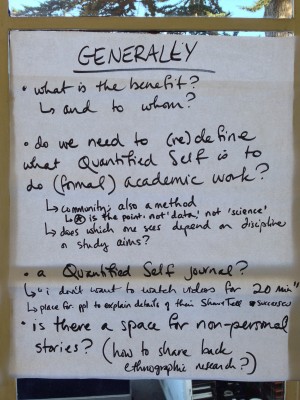 GENERALLY
• what is the benefit?
↳ and to whom?
• do we need to (re)define
what Quantified Self is to
do (formal) academic work?
↳ community; also a method
↳ is the point: not 'data', not 'science'
↳ does which one sees depend on discipline
or study aims?
• a Quantified Self journal?
↳ "i don't want to watch videos for 20 min"
↳ place for ppl to explain details of their Show & Tell
• is there a space for non-personal
stories? (how to share back
ethnographic research?)